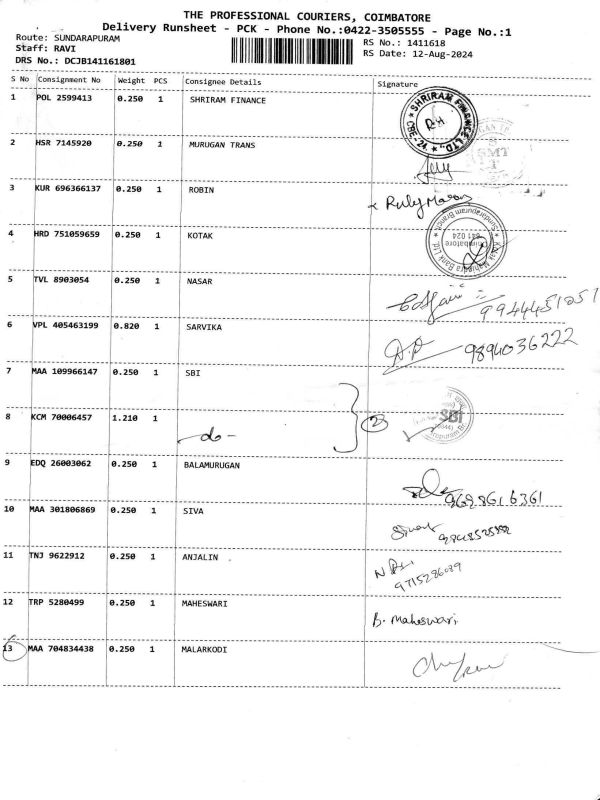 THE PROFESSIONAL COURIERS, COIMBATORE
Delivery Runsheet - PCK - Phone No.:0422-3505555 - Page No.:1
Route: SUNDARAPURAM RS No.: 1411618
Staff: RAVI RS Date: 12-Aug-2024
DRS No.: DCJB141161801
S No Consignment No Weight PCS Consignee Details Signature
1 POL 2599413 0.250 1 SHRIRAM FINANCE
SHRIRAM FINANCE LTD. CBE-24
2 HSR 7145920 0.250 1 MURUGAN TRANS
3 KUR 696366137 0.250 1 ROBIN
4 HRD 751059659 0.250 1 KOTAK
Kotak Mahindra Bank Ltd. Sundarapuram Branch Coimbatore 641 024
5 TVL 8903054 0.250 1 NASAR
6 VPL 405463199 0.820 1 SARVIKA 9894036222
7 MAA 109966147 0.250 1 SBI
8 KCM 70006457 1.210 1 -do- 2 SBI
9 EDQ 26003062 0.250 1 BALAMURUGAN
10 MAA 301806869 0.250 1 SIVA
11 TNJ 9622912 0.250 1 ANJALIN
12 TRP 5280499 0.250 1 MAHESWARI B. Maheswari
13 MAA 704834438 0.250 1 MALARKODI